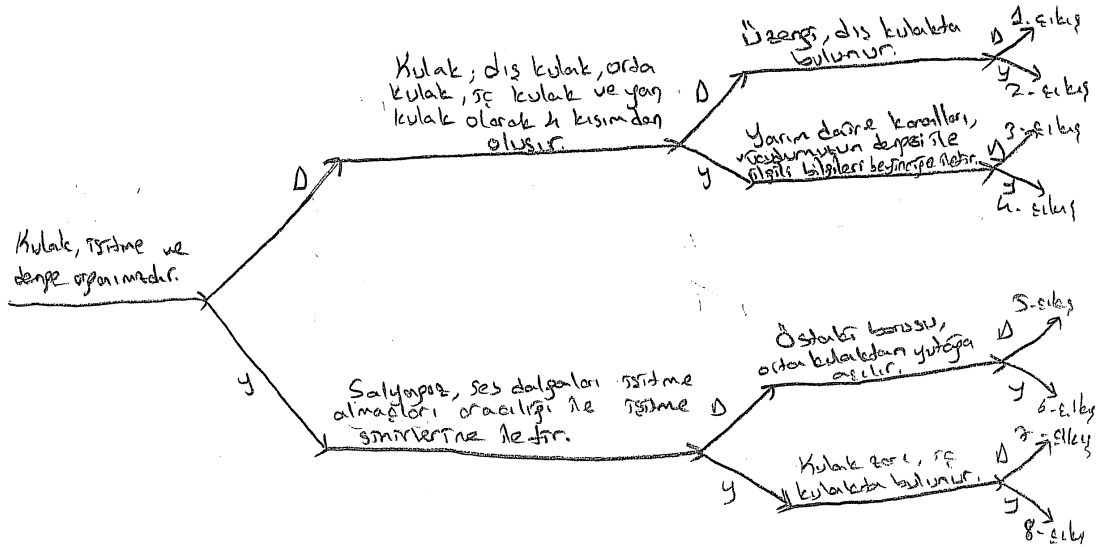 Kulak, işitme ve
denge organımızdır.
D
Y
Kulak; dış kulak, orta
kulak, iç kulak ve yan
kulak olarak 4 kısımdan
oluşur.
D
Y
Üzengi, dış kulakta
bulunur.
D
Y
1. çıkış
2. çıkış
Yarım daire kanalları,
vücudumuzun dengesi ile
ilgili bilgileri beyinciğe iletir.
D
Y
3. çıkış
4. çıkış
Salyangoz, ses dalgaları işitme
almaçları aracılığı ile işitme
sinirlerine iletir.
D
Y
Östaki borusu,
orta kulaktan yutağa
açılır.
D
Y
5. çıkış
6. çıkış
Kulak zarı, iç
kulakta bulunur.
D
Y
7. çıkış
8. çıkış